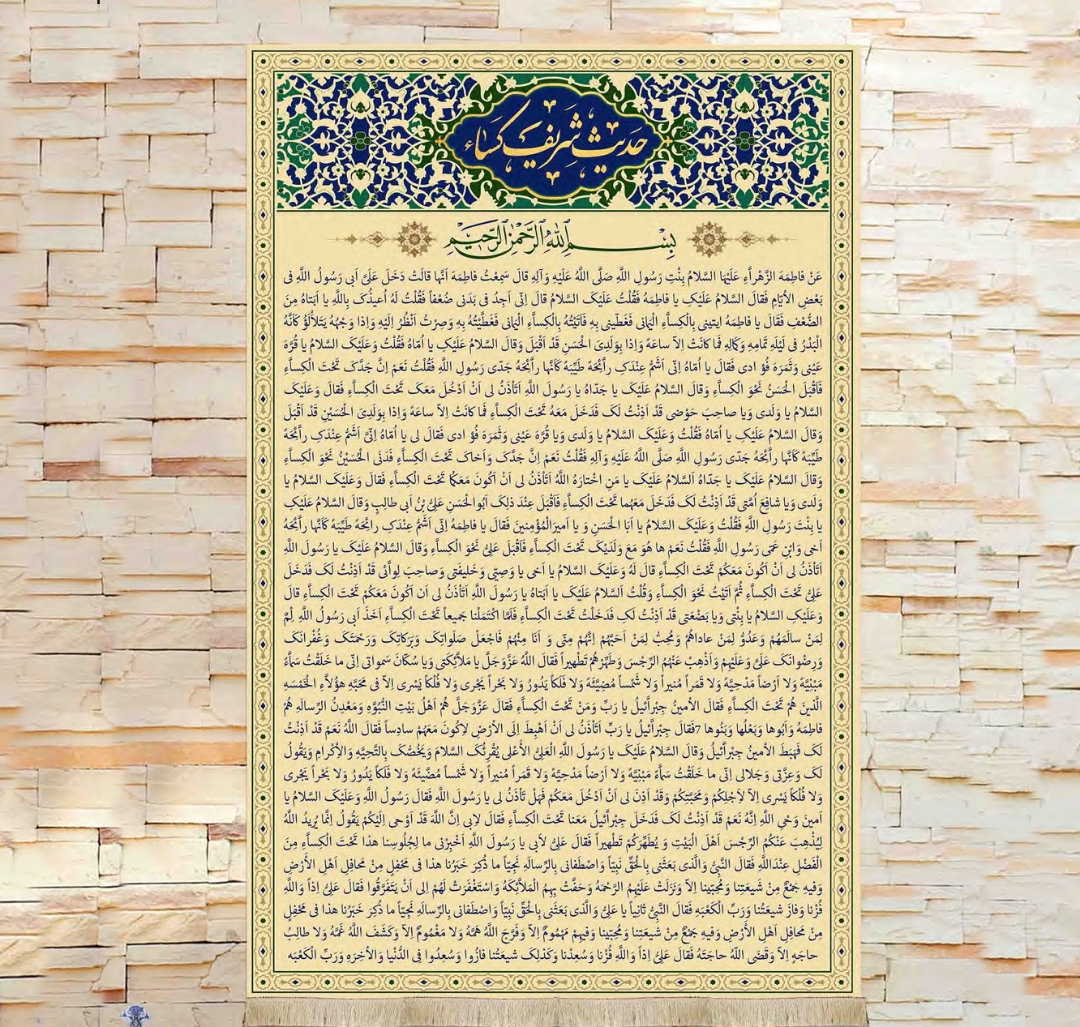 حدیث شریف کساء
بِسْمِ اللهِ الرَّحْمٰنِ الرَّحیمِ
عَنْ فاطِمَهَ الزَّهْراَّءِ عَلَیْهَا السَّلامُ بِنْتِ رَسُولِ اللَّهِ صَلَّی اللَّهُ عَلَیْهِ وَآلِهِ قالَ سَمِعْتُ فاطِمَهَ اَنَّها قالَتْ دَخَلَ عَلَیَّ اَبی رَسُولُ اللَّهِ فی
بَعْضِ الاْیَّامِ فَقالَ السَّلامُ عَلَیْکِ یا فاطِمَهُ فَقُلْتُ عَلَیْکَ السَّلامُ قالَ اِنّی اَجِدُ فی بَدَنی ضُعْفاً فَقُلْتُ لَهُ اُعیذُکَ بِاللَّهِ یا اَبَتاهُ مِنَ
الضُّعْفِ فَقَالَ یا فاطِمَهُ ایتینی بِالْکِساَّءِ الْیَمانی فَغَطّینی بِهِ فَاَتَیْتُهُ بِالْکِساَّءِ الْیَمانی فَغَطَّیْتُهُ بِهِ وَصِرْتُ اَنْظُرُ اِلَیْهِ وَاِذا وَجْهُهُ یَتَلاَْلَؤُ کَاَنَّهُ
الْبَدْرُ فی لَیْلَهِ تَمامِهِ وَکَمالِهِ فَما کانَتْ اِلاّ ساعَهً وَاِذا بِوَلَدِیَ الْحَسَنِ قَدْ اَقْبَلَ وَقالَ السَّلامُ عَلَیْکِ یا اُمّاهُ فَقُلْتُ وَعَلَیْکَ السَّلامُ یا قُرَّهَ
عَیْنی وَثَمَرَهَ فُؤ ادی فَقالَ یا اُمّاهُ اِنّی اَشَمُّ عِنْدَکِ راَّئِحَهً طَیِّبَهً کَاَنَّها راَّئِحَهُ جَدّی رَسُولِ اللَّهِ فَقُلْتُ نَعَمْ اِنَّ جَدَّکَ تَحْتَ الْکِساَّءِ
فَاَقْبَلَ الْحَسَنُ نَحْوَ الْکِساَّءِ وَقالَ السَّلامُ عَلَیْکَ یا جَدّاهُ یا رَسُولَ اللَّهِ اَتَاْذَنُ لی اَنْ اَدْخُلَ مَعَکَ تَحْتَ الْکِساَّءِ فَقالَ وَعَلَیْکَ
السَّلامُ یا وَلَدی وَیا صاحِبَ حَوْضی قَدْ اَذِنْتُ لَکَ فَدَخَلَ مَعَهُ تَحْتَ الْکِساَّءِ فَما کانَتْ اِلاّ ساعَهً وَاِذا بِوَلَدِیَ الْحُسَیْنِ قَدْ اَقْبَلَ
وَقالَ السَّلامُ عَلَیْکِ یا اُمّاهُ فَقُلْتُ وَعَلَیْکَ السَّلامُ یا وَلَدی وَیا قُرَّهَ عَیْنی وَثَمَرَهَ فُؤ ادی فَقالَ لی یا اُمّاهُ اِنّی اَشَمُّ عِنْدَکِ راَّئِحَهً
طَیِّبَهً کَاَنَّها راَّئِحَهُ جَدّی رَسُولِ اللَّهِ صَلَّی اللَّهُ عَلَیْهِ وَآلِهِ فَقُلْتُ نَعَمْ اِنَّ جَدَّکَ وَاَخاکَ تَحْتَ الْکِساَّءِ فَدَنَی الْحُسَیْنُ نَحْوَ الْکِساَّءِ
وَقالَ السَّلامُ عَلَیْکَ یا جَدّاهُ اَلسَّلامُ عَلَیْکَ یا مَنِ اخْتارَهُ اللَّهُ اَتَاْذَنُ لی اَنْ اَکُونَ مَعَکُما تَحْتَ الْکِساَّءِ فَقالَ وَعَلَیْکَ السَّلامُ یا
وَلَدی وَیا شافِعَ اُمَّتی قَدْ اَذِنْتُ لَکَ فَدَخَلَ مَعَهُما تَحْتَ الْکِساَّءِ فَاَقْبَلَ عِنْدَ ذلِکَ اَبُوالْحَسَنِ عَلِیُّ بْنُ اَبی طالِبٍ وَقالَ السَّلامُ عَلَیْکِ
یا بِنْتَ رَسُولِ اللَّهِ فَقُلْتُ وَعَلَیْکَ السَّلامُ یا اَبَا الْحَسَنِ وَ یا اَمیرَ الْمُؤْمِنینَ فَقالَ یا فاطِمَهُ اِنّی اَشَمُّ عِنْدَکِ رائِحَهً طَیِّبَهً کَاَنَّها راَّئِحَهُ
اَخی وَابْنِ عَمّی رَسُولِ اللَّهِ فَقُلْتُ نَعَمْ ها هُوَ مَعَ وَلَدَیْکَ تَحْتَ الْکِساَّءِ فَاَقْبَلَ عَلِیُّ نَحْوَ الْکِساَّءِ وَقالَ السَّلامُ عَلَیْکَ یا رَسُولَ اللَّهِ
اَتَاْذَنُ لی اَنْ اَکُونَ مَعَکُمْ تَحْتَ الْکِساَّءِ قالَ لَهُ وَعَلَیْکَ السَّلامُ یا اَخی یا وَصِیّی وَخَلیفَتی وَصاحِبَ لِواَّئی قَدْ اَذِنْتُ لَکَ فَدَخَلَ
عَلِیُّ تَحْتَ الْکِساَّءِ ثُمَّ اَتَیْتُ نَحْوَ الْکِساَّءِ وَقُلْتُ اَلسَّلامُ عَلَیْکَ یا اَبَتاهُ یا رَسُولَ اللَّهِ اَتَاْذَنُ لی اَن اَکُونَ مَعَکُمْ تَحْتَ الْکِساَّءِ قالَ
وَعَلَیْکِ السَّلامُ یا بِنْتی وَیا بَضْعَتی قَدْ اَذِنْتُ لَکِ فَدَخَلْتُ تَحْتَ الْکِساَّءِ فَلَمَّا اکْتَمَلْنا جَمیعاً تَحْتَ الْکِساَّءِ اَخَذَ اَبی رَسُولُ اللَّهِ لِمَ
لِمَنْ سالَمَهُمْ وَعَدُوُّ لِمَنْ عاداهُمْ وَمُحِبُّ لِمَنْ اَحَبَّهُمْ اِنَّهُمْ مِنّی وَ اَنَا مِنْهُمْ فَاجْعَلْ صَلَواتِکَ وَبَرَکاتِکَ وَرَحْمَتَکَ وَ غُفْرانَکَ
وَرِضْوانَکَ عَلَیَّ وَعَلَیْهِمْ وَاَذْهِبْ عَنْهُمُ الرِّجْسَ وَطَهِّرْهُمْ تَطْهیراً فَقالَ اللَّهُ عَزَّوَجَلَّ یا مَلاَّئِکَتی وَیا سُکّانَ سَمواتی اِنّی ما خَلَقْتُ سَماَّءً
مَبْنِیَّهً وَلا اَرْضاً مَدْحِیَّهً وَلا قَمَراً مُنیراً وَلا شَمْساً مُضِیَّئَهً وَلا فَلَکاً یَدُورُ وَلا بَحْراً یَجْری وَلا فُلْکاً یَسْری اِلاّ فی مَحَبَّهِ هؤُلاَّءِ الْخَمْسَهِ
الَّذینَ هُمْ تَحْتَ الْکِساَّءِ فَقالَ الاْمینُ جِبْراَّئیلُ یا رَبِّ وَمَنْ تَحْتَ الْکِساَّءِ فَقالَ عَزَّوَجَلَّ هُمْ اَهْلُ بَیْتِ النُّبُوَّهِ وَمَعْدِنُ الرِّسالَهِ هُمْ
فاطِمَهُ وَاَبُوها وَبَعْلُها وَبَنُوها 7فَقالَ جِبْراَّئیلُ یا رَبِّ اَتَاْذَنُ لی اَنْ اَهْبِطَ اِلَی الاْرْضِ لاِکُونَ مَعَهُمْ سادِساً فَقالَ اللَّهُ نَعَمْ قَدْ اَذِنْتُ
لَکَ فَهَبَطَ الاْمینُ جِبْراَّئیلُ وَقالَ السَّلامُ عَلَیْکَ یا رَسُولَ اللَّهِ الْعَلِیُّ الاْعْلی یُقْرِئُکَ السَّلامَ وَیَخُصُّکَ بِالتَّحِیَّهِ وَالاْکْرامِ وَیَقُولُ
لَکَ وَعِزَّتی وَجَلالی اِنّی ما خَلَقْتُ سَماَّءً مَبْنِیَّهً وَلا اَرْضاً مَدْحِیَّهً وَلا قَمَراً مُنیراً وَلا شَمْساً مُضَّیئَهً وَلا فَلَکاً یَدُورُ وَلا بَحْراً یَجْری
وَلا فُلْکاً یَسْری اِلاّ لاِجْلِکُمْ وَمَحَبَّتِکُمْ وَقَدْ اَذِنَ لی اَنْ اَدْخُلَ مَعَکُمْ فَهَلْ تَاْذَنُ لی یا رَسُولَ اللَّهِ فَقالَ رَسُولُ اللَّهِ وَعَلَیْکَ السَّلامُ یا
اَمینَ وَحْیِ اللَّهِ اِنَّهُ نَعَمْ قَدْ اَذِنْتُ لَکَ فَدَخَلَ جِبْراَّئیلُ مَعَنا تَحْتَ الْکِساَّءِ فَقالَ لاِبی اِنَّ اللَّهَ قَدْ اَوْحی اِلَیْکُمْ یَقُولُ اِنَّما یُریدُ اللَّهُ
لِیُذْهِبَ عَنْکُمُ الرِّجْسَ اَهْلَ الْبَیْتِ وَ یُطَهِّرَکُمْ تَطْهیراً فَقالَ عَلِیُّ لاَبی یا رَسُولَ اللَّهِ اَخْبِرْنی ما لِجُلُوسِنا هذا تَحْتَ الْکِساَّءِ مِنَ
الْفَضْلِ عِنْدَ اللَّهِ فَقالَ النَّبِیُّ وَالَّذی بَعَثَنی بِالْحَقِّ نَبِیّاً وَاصْطَفانی بِالرِّسالَهِ نَجِیّاً ما ذُکِرَ خَبَرُنا هذا فی مَحْفِلٍ مِنْ مَحافِلِ اَهْلِ الاْرْضِ
وَفیهِ جَمْعٌ مِنْ شیعَتِنا وَمُحِبّینا اِلاّ وَنَزَلَتْ عَلَیْهِمُ الرَّحْمَهُ وَحَفَّتْ بِهِمُ الْمَلاَّئِکَهُ وَاسْتَغْفَرَتْ لَهُمْ اِلی اَنْ یَتَفَرَّقُوا فَقالَ عَلِیُّ اِذاً وَاللَّهِ
فُزْنا وَفازَ شیعَتُنا وَرَبِّ الْکَعْبَهِ فَقالَ النَّبِیُّ ثانِیاً یا عَلِیُّ وَالَّذی بَعَثَنی بِالْحَقِّ نَبِیّاً وَاصْطَفانی بِالرِّسالَهِ نَجِیّاً ما ذُکِرَ خَبَرُنا هذا فی مَحْفِلٍ
مِنْ مَحافِلِ اَهْلِ الاْرْضِ وَفیهِ جَمْعٌ مِنْ شیعَتِنا وَمُحِبّینا وَفیهِمْ مَهْمُومٌ اِلاّ وَفَرَّجَ اللَّهُ هَمَّهُ وَلا مَغْمُومٌ اِلاّ وَکَشَفَ اللَّهُ غَمَّهُ وَلا طالِبُ
حاجَهٍ اِلاّ وَقَضَی اللَّهُ حاجَتَهُ فَقالَ عَلِیُّ اِذاً وَاللَّهِ فُزْنا وَسُعِدْنا وَکَذلِکَ شیعَتُنا فازُوا وَسُعِدُوا فِی الدُّنْیا وَالاْخِرَهِ وَرَبِّ الْکَعْبَه